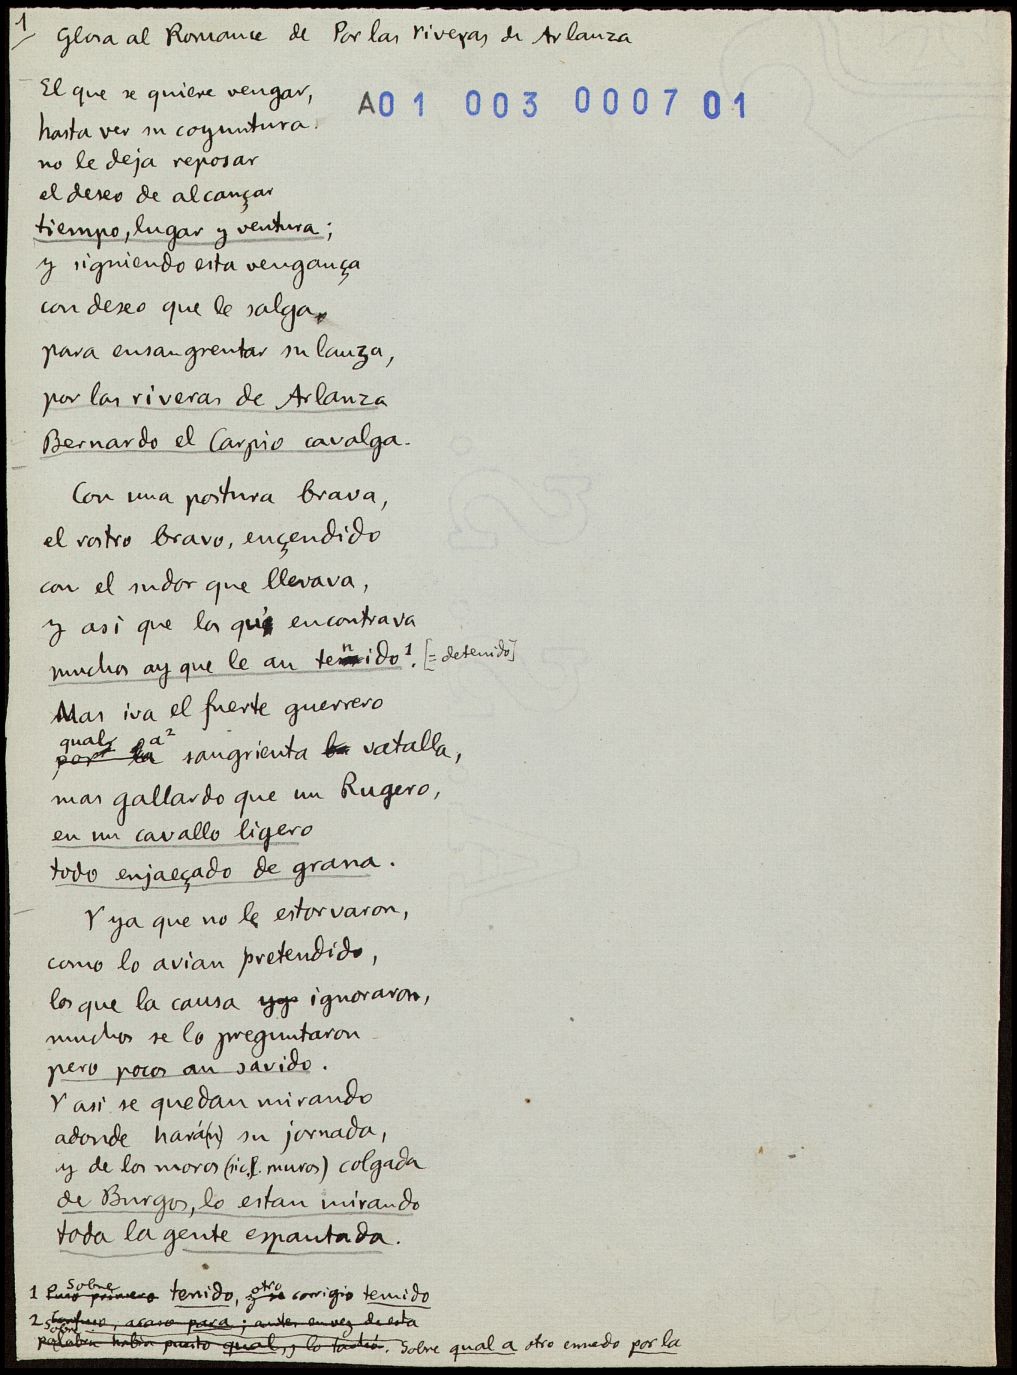 1
Glosa al Romance de Por las riveras de Arlanza
A01 003 0007 01
El que se quiere vengar,
hasta ver su coyuntura.
no le deja reposar
el deseo de alcançar
tiempo, lugar y ventura;
y siguiendo esta vengança
con deseo que le salga,
para ensangrentar su lanza,
por las riveras de Arlanza
Bernardo el Carpio cavalga.
Con una postura brava,
el rostro bravo, ençendido
con el sudor que llevava,
y asi que los que encontrava
muchos ay que le an tenido¹. [= detenido]
Mas iva el fuerte guerrero
qual a² sangrienta vatalla,
mas gallardo que un Rugero,
en un cavallo ligero
todo enjaeçado de grana.
Y ya que no le estorvaron,
como lo avian pretendido,
los que la causa ignoraron,
muchos se lo preguntaron
pero pocos an savido.
Y asi se quedan mirando
adonde hará(n) su jornada,
y de los moros (sic, l. muros) colgada
de Burgos, lo estan mirando
toda la gente espantada.
1 Sobre tenido, otro corrigió temido
2 Sobre qual a otro enmedo por la